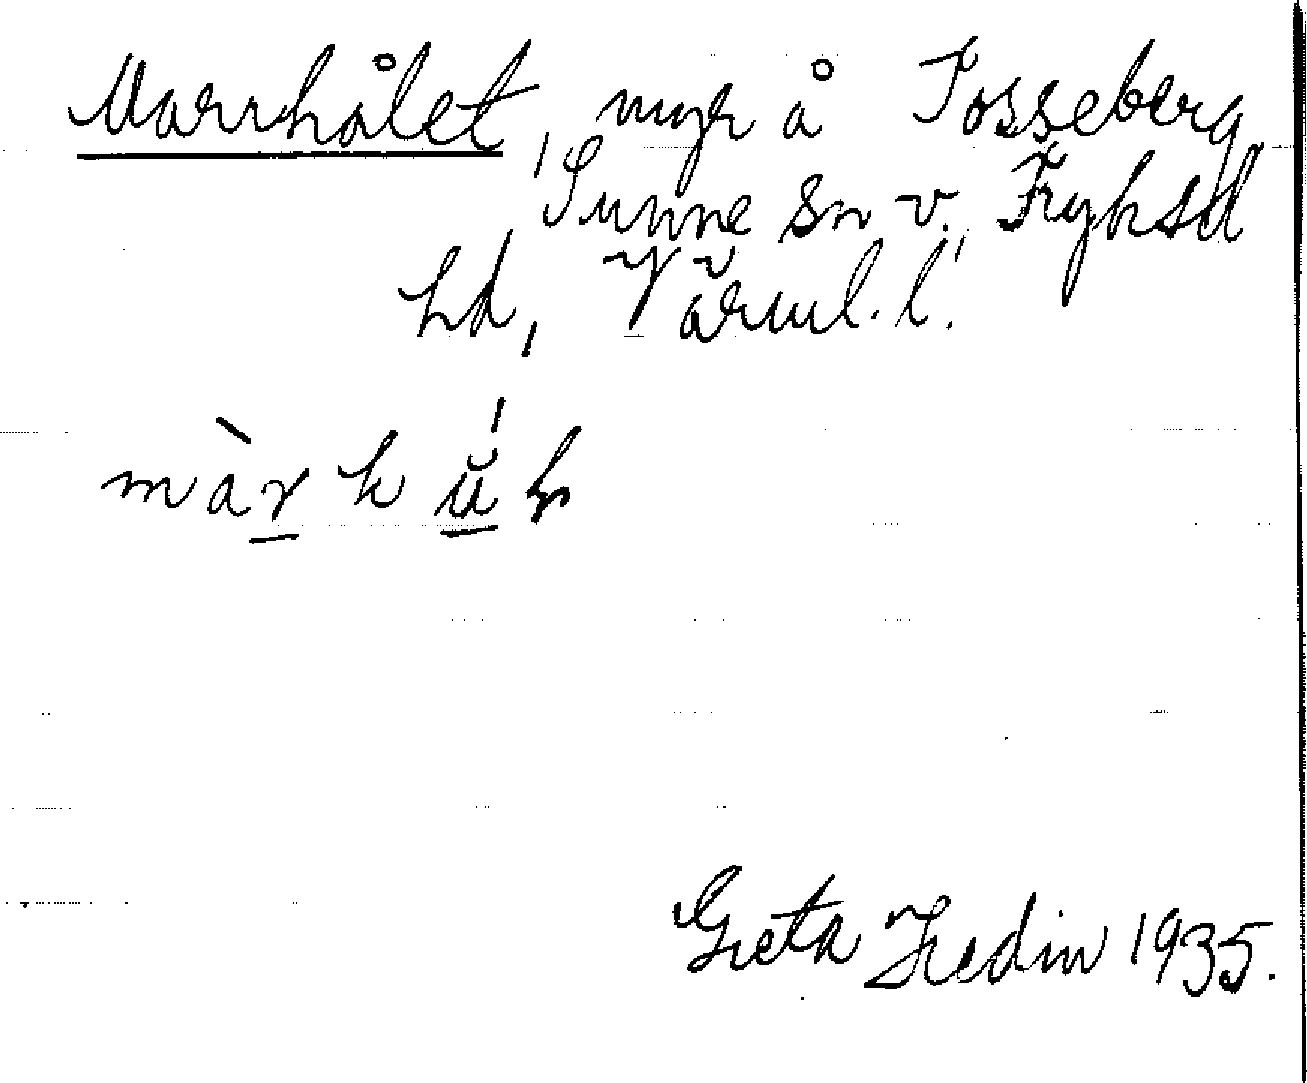 Marrhålet, myr å Tosseberg,
Sunne sn v. Fryksd
hd, Värml. l.
Greta Hedin 1935.